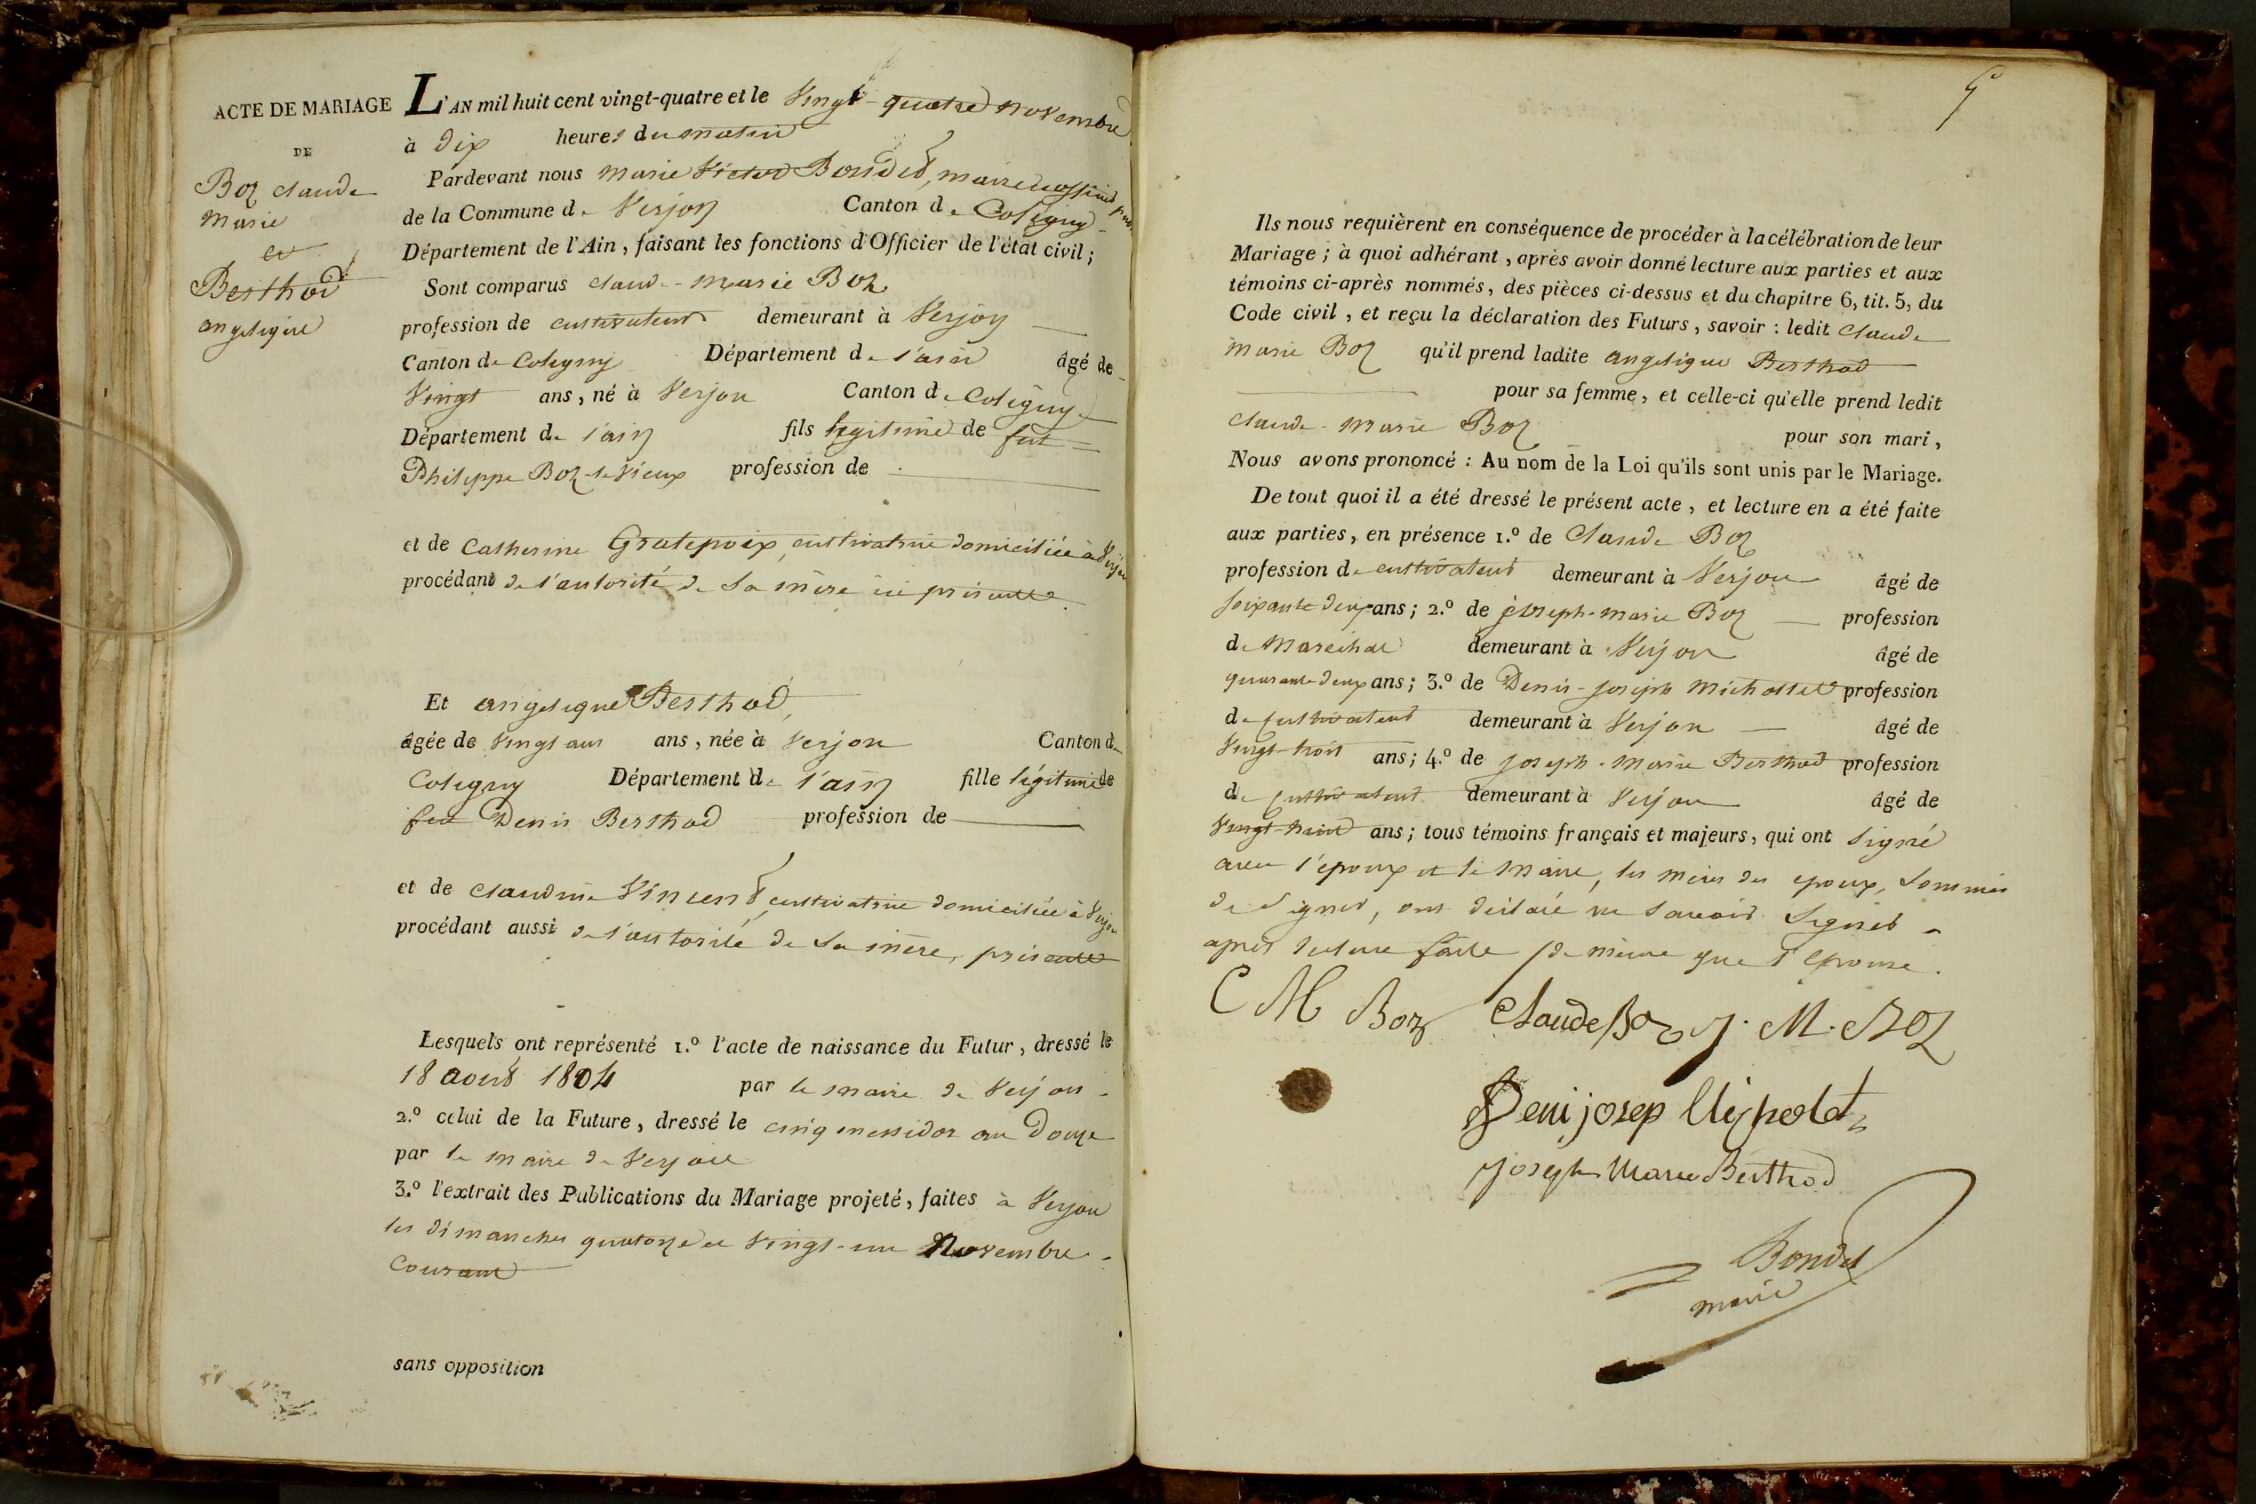 ACTE DE MARIAGE
DE
Boz claude
marie
et
Berthod
angelique
L'AN mil huit cent vingt-quatre et le Vingt-quatre novembre
à dix heures du matin
Pardevant nous marie Victor Bondet, maire
de la Commune de Verjon Canton de Coligny
Département de l'Ain, faisant les fonctions d'Officier de l'état civil;
Sont comparus claude-marie Boz
profession de cultivateur demeurant à Verjon
Canton de Coligny Département de l'ain âgé de
Vingt ans, né à Verjon Canton de Coligny
Département de l'ain fils légitime de feu
Philippe Boz-le Vieux profession de
et de Catherine Gratepoix, cultivatrice domiciliée à Verjon
procédant de l'autorité de sa mère ici présente.
Et angelique Berthod,
âgée de Vingt ans ans, née à Verjon Canton de
Coligny Département de l'ain fille légitime de
feu Denis Berthod profession de
et de claudine Vincent, cultivatrice domiciliée à Verjon
procédant aussi de l'autorité de sa mère, présente
Lesquels ont représenté 1.º l'acte de naissance du Futur, dressé le
18 aout 1804 par le maire de Verjon
2.º celui de la Future, dressé le cinq messidor an Douze
par le maire de Verjon
3.º l'extrait des Publications du Mariage projeté, faites à Verjon
les dimanches quatorze et Vingt-un Novembre
Courant
sans opposition
Ils nous requièrent en conséquence de procéder à la célébration de leur
Mariage; à quoi adhérant, après avoir donné lecture aux parties et aux
témoins ci-après nommés, des pièces ci-dessus et du chapitre 6, tit. 5, du
Code civil, et reçu la déclaration des Futurs, savoir: ledit Claude
marie Boz qu'il prend ladite angelique Berthod
pour sa femme, et celle-ci qu'elle prend ledit
claude-marie Boz pour son mari,
Nous avons prononcé: Au nom de la Loi qu'ils sont unis par le Mariage.
De tout quoi il a été dressé le présent acte, et lecture en a été faite
aux parties, en présence 1.º de Claude Boz
profession de cultivateur demeurant à Verjon âgé de
soixante deux ans; 2.º de joseph-marie Boz profession
de Maréchal demeurant à Verjon âgé de
quarante-deux ans; 3.º de Denis-joseph Michollet profession
de cultivateur demeurant à Verjon âgé de
Vingt-trois ans; 4.º de joseph-marie Berthod profession
de cultivateur demeurant à Verjon âgé de
Vingt-huit ans; tous témoins français et majeurs, qui ont signé
avec l'epoux et le Maire, les mères des epoux, sommées
de signer, ont déclaré ne savoir signer
après lecture faite de même que l'Epouse.
C M Boz Claude Boz J. M. BOZ
Deni josep Micholet
joseph Marie Berthod
Bondet
maire